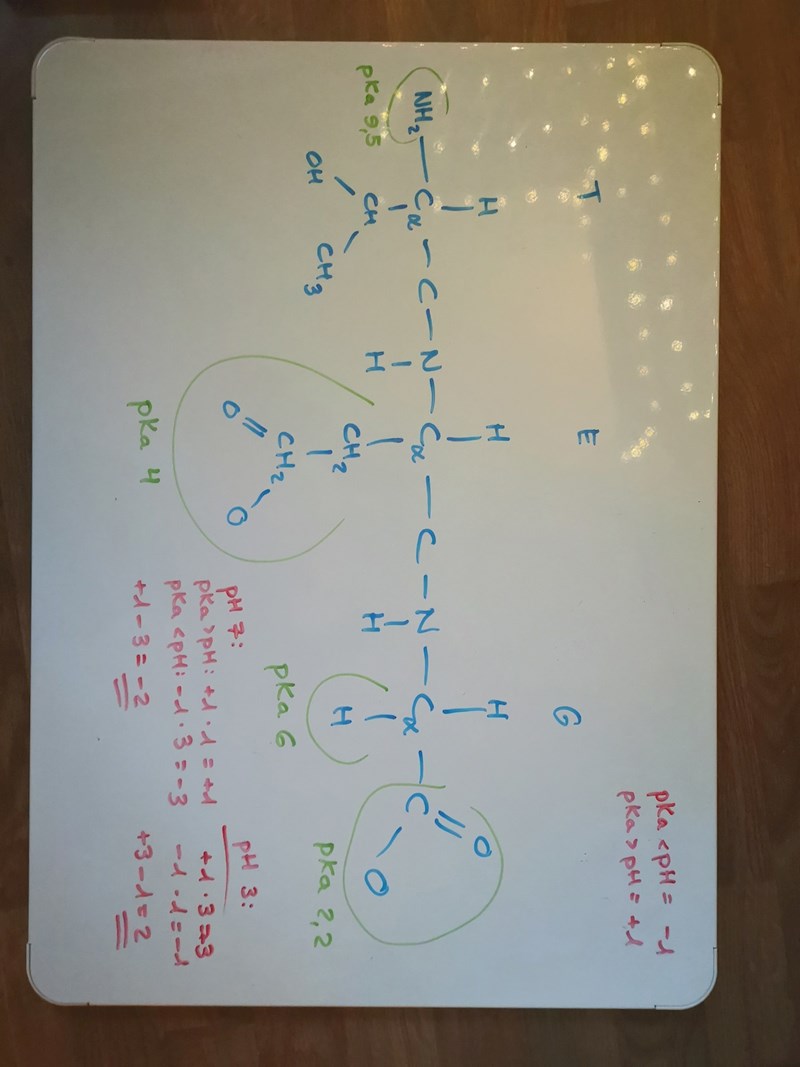 T E G
pKa < pH = -1
pKa > pH = +1
H H H
NH2 — Cα — C — N — Cα — C — N — Cα — C = O
pKa 9,5 CH H CH2 H H O
OH CH3 CH2 pKa 6 pKa 2,2
O O
pKa 4
pH 7:
pKa > pH: +1 · 1 = +1
pKa < pH: -1 · 3 = -3
+1 - 3 = -2
pH 3:
+1 · 3 = 3
-1 · 1 = -1
+3 - 1 = 2